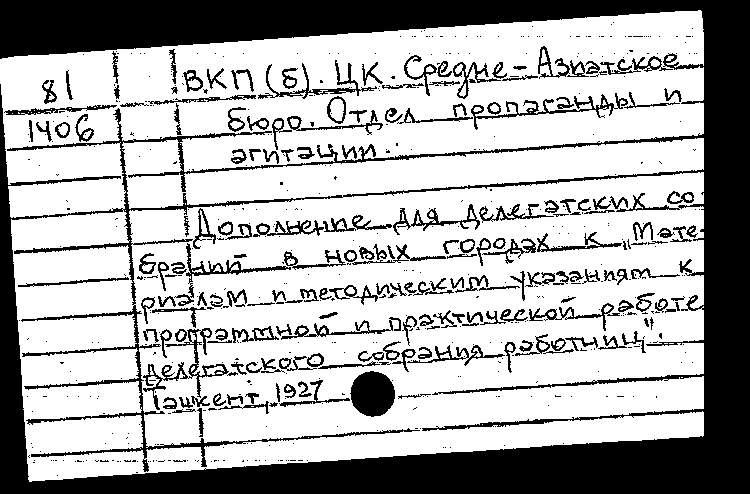 81 ВКП(б). ЦК. Средне-Азиатское
1406 бюро. Отдел пропаганды и
агитации.
Дополнение для делегатских со
браний в новых городах к „Мате-
риалам и методическим указаниям к
программной и практической работе
делегатского собрания работниц".
Ташкент, 1927